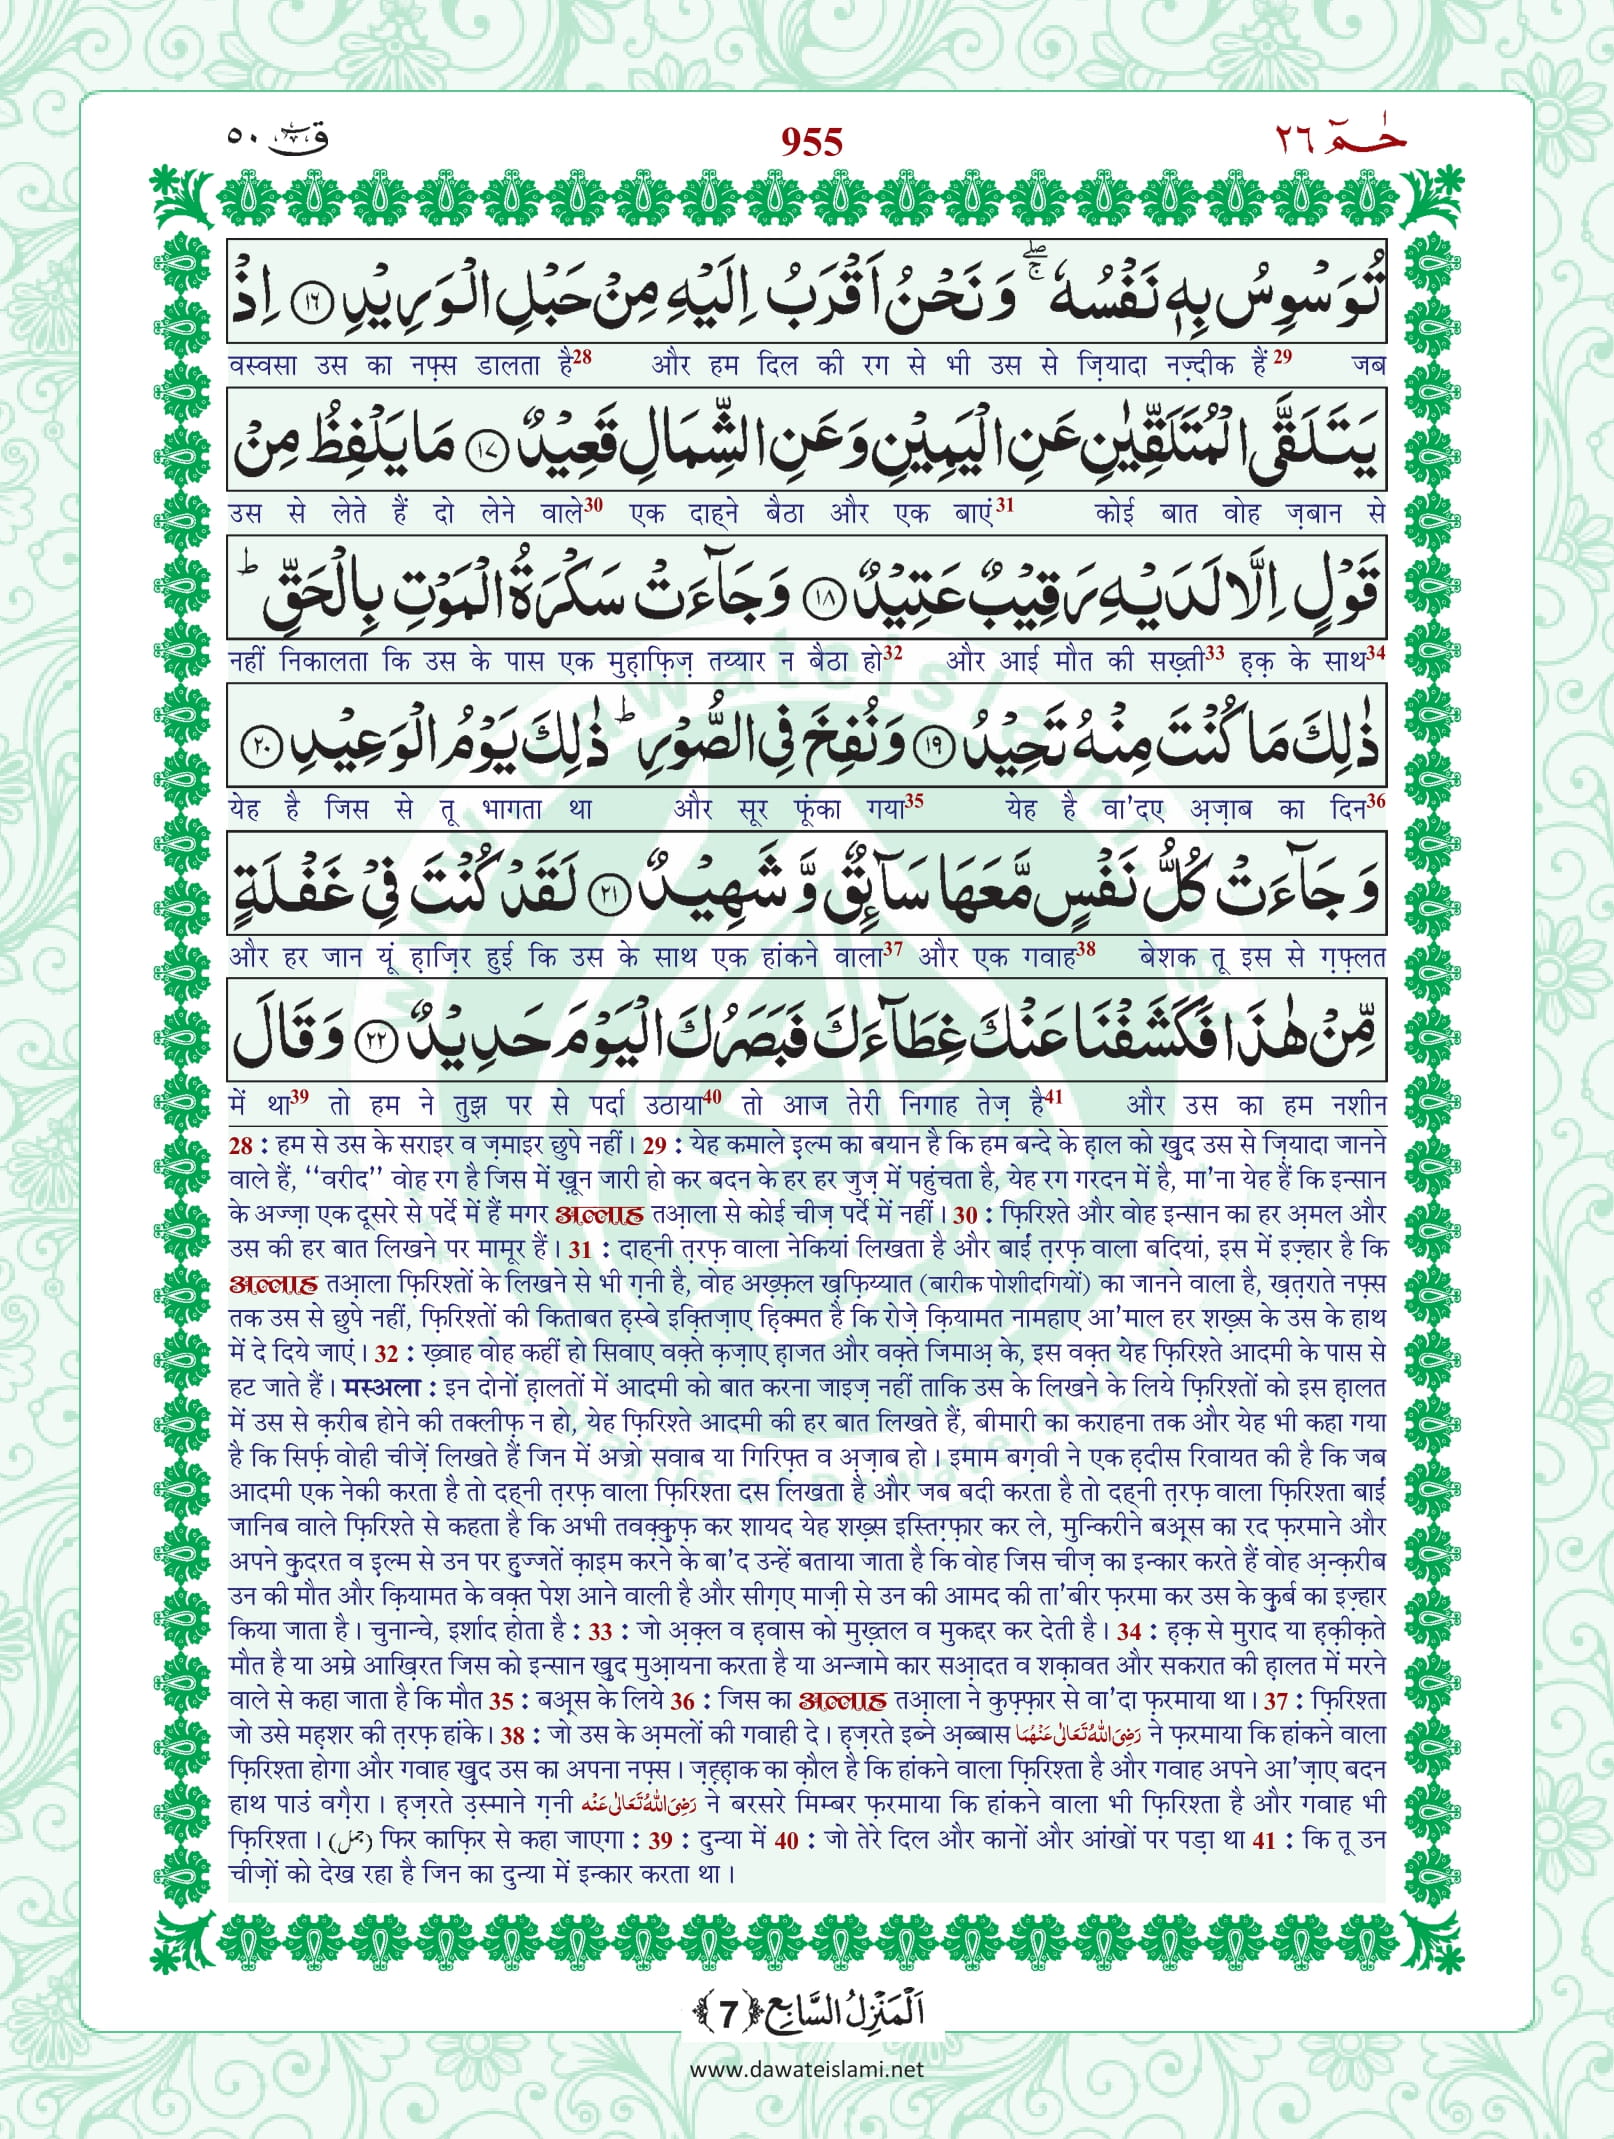 حٰمٓ ٢٦ 955 قٓ ٥٠
تُوَسْوِسُ بِهٖ نَفْسُهٗ ۚۖ وَ نَحْنُ اَقْرَبُ اِلَیْهِ مِنْ حَبْلِ الْوَرِیْدِ ﴿۱۶﴾ اِذْ
वस्वसा उस का नफ़्स डालता है28 और हम दिल की रग से भी उस से ज़ियादा नज़्दीक हैं29 जब
یَتَلَقَّی الْمُتَلَقِّیٰنِ عَنِ الْیَمِیْنِ وَ عَنِ الشِّمَالِ قَعِیْدٌ ﴿۱۷﴾ مَا یَلْفِظُ مِنْ
उस से लेते हैं दो लेने वाले30 एक दाहने बैठा और एक बाएं31 कोई बात वोह ज़बान से
قَوْلٍ اِلَّا لَدَیْهِ رَقِیْبٌ عَتِیْدٌ ﴿۱۸﴾ وَ جَآءَتْ سَكْرَةُ الْمَوْتِ بِالْحَقِّ ؕ
नहीं निकालता कि उस के पास एक मुहाफ़िज़ तय्यार न बैठा हो32 और आई मौत की सख़्ती33 ह़क़ के साथ34
ذٰلِكَ مَا كُنْتَ مِنْهُ تَحِیْدُ ﴿۱۹﴾ وَ نُفِخَ فِی الصُّوْرِ ؕ ذٰلِكَ یَوْمُ الْوَعِیْدِ ﴿۲۰﴾
येह है जिस से तू भागता था और सूर फूंका गया35 येह है वा'दए अ़ज़ाब का दिन36
وَ جَآءَتْ كُلُّ نَفْسٍ مَّعَهَا سَآىِٕقٌ وَّ شَهِیْدٌ ﴿۲۱﴾ لَقَدْ كُنْتَ فِیْ غَفْلَةٍ
और हर जान यूं ह़ाज़िर हुई कि उस के साथ एक हांकने वाला37 और एक गवाह38 बेशक तू इस से ग़फ़्लत
مِّنْ هٰذَا فَكَشَفْنَا عَنْكَ غِطَآءَكَ فَبَصَرُكَ الْیَوْمَ حَدِیْدٌ ﴿۲۲﴾ وَ قَالَ
में था39 तो हम ने तुझ पर से पर्दा उठाया40 तो आज तेरी निगाह तेज़ है41 और उस का हम नशीन
28 : हम से उस के सराइर व ज़माइर छुपे नहीं। 29 : येह कमाले इ़ल्म का बयान है कि हम बन्दे के ह़ाल को ख़ुद उस से ज़ियादा जानने
वाले हैं, ‘‘वरीद’’ वोह रग है जिस में ख़ून जारी हो कर बदन के हर हर जुज़ में पहुंचता है, येह रग गरदन में है, मा'ना येह हैं कि इन्सान
के अज्ज़ा एक दूसरे से पर्दे में हैं मगर अल्लाह तआ़ला से कोई चीज़ पर्दे में नहीं। 30 : फ़िरिश्ते और वोह इन्सान का हर अ़मल और
उस की हर बात लिखने पर मामूर हैं। 31 : दाहनी त़रफ़ वाला नेकियां लिखता है और बाईं त़रफ़ वाला बदियां, इस में इज़्हार है कि
अल्लाह तआ़ला फ़िरिश्तों के लिखने से भी ग़नी है, वोह अख़्फ़ल ख़फ़िय्यात (बारीक पोशीदगियों) का जानने वाला है, ख़त़राते नफ़्स
तक उस से छुपे नहीं, फ़िरिश्तों की किताबत ह़स्बे इक़्तिज़ाए ह़िक्मत है कि रोज़े क़ियामत नामहाए आ'माल हर शख़्स के उस के हाथ
में दे दिये जाएं। 32 : ख़्वाह वोह कहीं हो सिवाए वक़्ते क़ज़ाए ह़ाजत और वक़्ते जिमाअ़ के, इस वक़्त येह फ़िरिश्ते आदमी के पास से
हट जाते हैं। मस्अला : इन दोनों ह़ालतों में आदमी को बात करना जाइज़ नहीं ताकि उस के लिखने के लिये फ़िरिश्तों को इस ह़ालत
में उस से क़रीब होने की तक्लीफ़ न हो, येह फ़िरिश्ते आदमी की हर बात लिखते हैं, बीमारी का कराहना तक और येह भी कहा गया
है कि सिर्फ़ वोही चीज़ें लिखते हैं जिन में अज्रो सवाब या गिरिफ़्त व अ़ज़ाब हो। इमाम बग़वी ने एक ह़दीस रिवायत की है कि जब
आदमी एक नेकी करता है तो दहनी त़रफ़ वाला फ़िरिश्ता दस लिखता है और जब बदी करता है तो दहनी त़रफ़ वाला फ़िरिश्ता बाईं
जानिब वाले फ़िरिश्ते से कहता है कि अभी तवक़्क़ुफ़ कर शायद येह शख़्स इस्तिग़्फ़ार कर ले, मुन्किरीने बअ़्स का रद फ़रमाने और
अपने क़ुदरत व इ़ल्म से उन पर हुज्जतें क़ाइम करने के बा'द उन्हें बताया जाता है कि वोह जिस चीज़ का इन्कार करते हैं वोह अ़न्क़रीब
उन की मौत और क़ियामत के वक़्त पेश आने वाली है और सीग़ए माज़ी से उन की आमद की ता'बीर फ़रमा कर उस के क़ुर्ब का इज़्हार
किया जाता है। चुनान्चे, इर्शाद होता है : 33 : जो अ़क़्ल व ह़वास को मुख़्तल व मुकद्दर कर देती है। 34 : ह़क़ से मुराद या ह़क़ीक़ते
मौत है या अम्रे आख़िरत जिस को इन्सान ख़ुद मुआ़यना करता है या अन्जामे कार सआ़दत व शक़ावत और सकरात की ह़ालत में मरने
वाले से कहा जाता है कि मौत 35 : बअ़्स के लिये 36 : जिस का अल्लाह तआ़ला ने कुफ़्फ़ार से वा'दा फ़रमाया था। 37 : फ़िरिश्ता
जो उसे मह़शर की त़रफ़ हांके। 38 : जो उस के अ़मलों की गवाही दे। ह़ज़रते इब्ने अ़ब्बास رَضِیَ اللّٰهُ تَعَالٰی عَنْهُمَا ने फ़रमाया कि हांकने वाला
फ़िरिश्ता होगा और गवाह ख़ुद उस का अपना नफ़्स। ज़ह़्ह़ाक का क़ौल है कि हांकने वाला फ़िरिश्ता है और गवाह अपने आ'ज़ाए बदन
हाथ पाउं वग़ैरा। ह़ज़रते उ़स्माने ग़नी رَضِیَ اللّٰهُ تَعَالٰی عَنْه ने बरसरे मिम्बर फ़रमाया कि हांकने वाला भी फ़िरिश्ता है और गवाह भी
फ़िरिश्ता। (جمل) फिर काफ़िर से कहा जाएगा : 39 : दुन्या में 40 : जो तेरे दिल और कानों और आंखों पर पड़ा था 41 : कि तू उन
चीज़ों को देख रहा है जिन का दुन्या में इन्कार करता था।
اَلْمَنْزِلُ السَّابِع ﴿7﴾
www.dawateislami.net